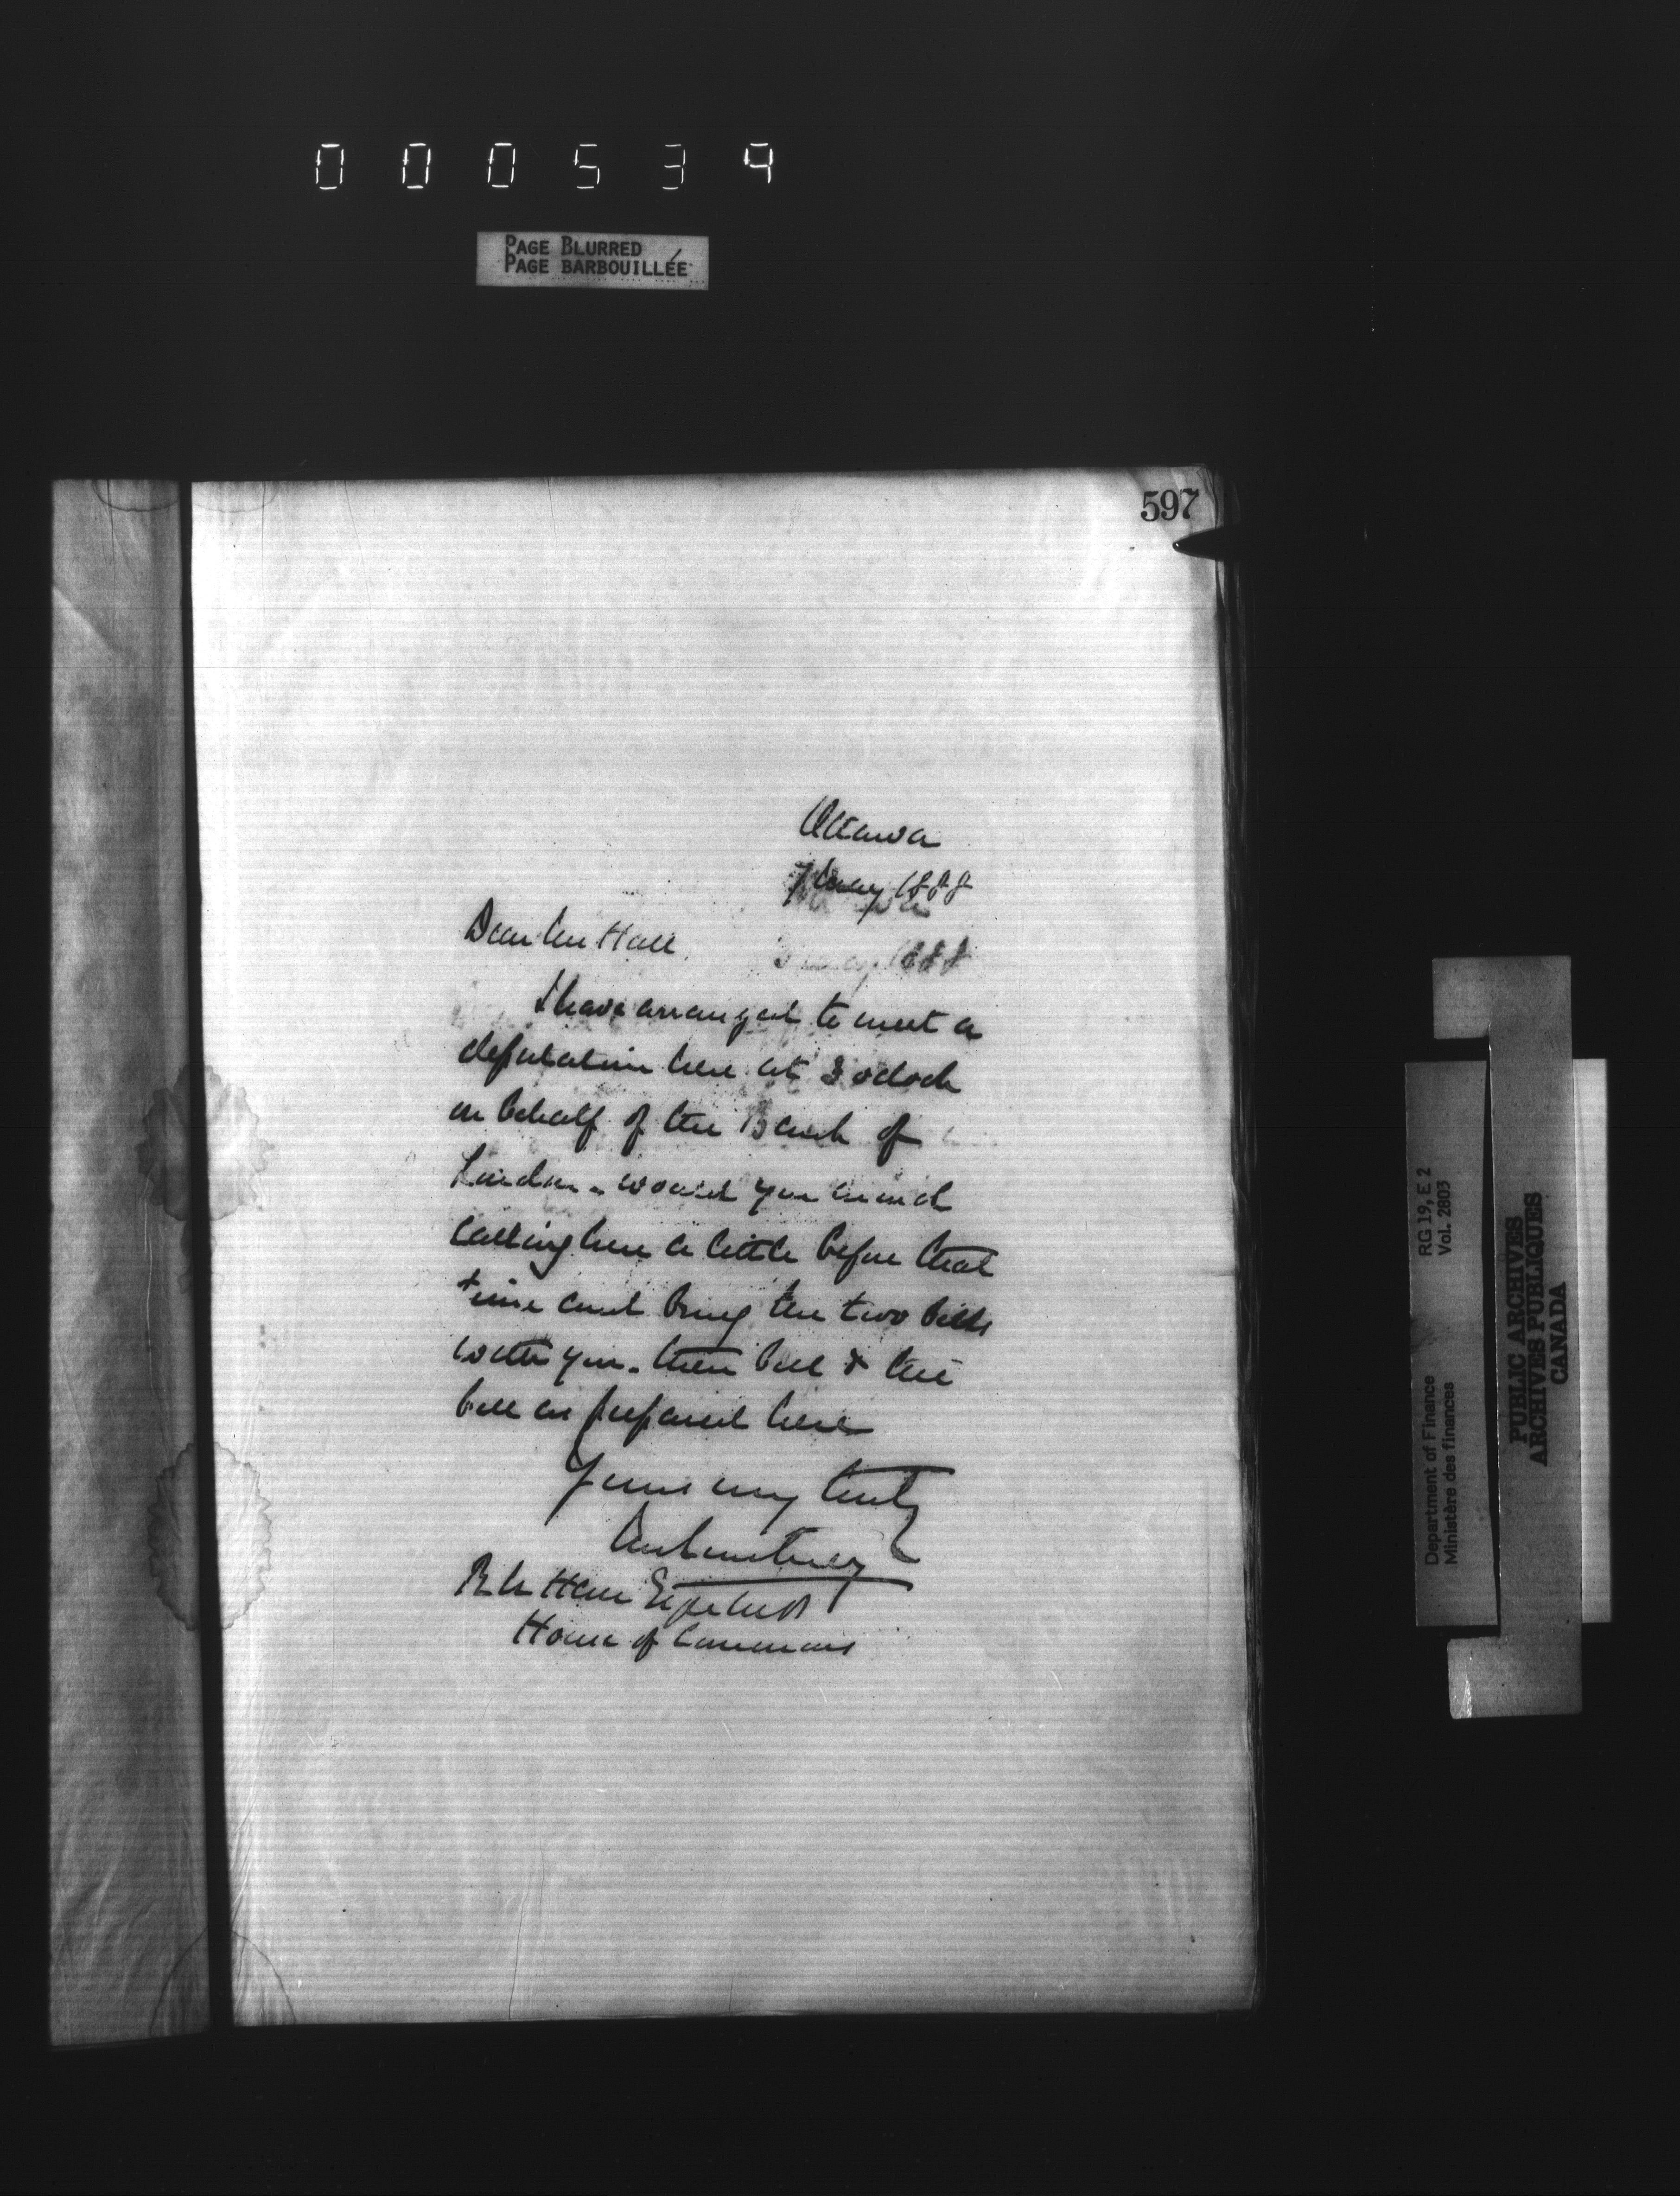 000534
PAGE BLURRED
PAGE BARBOUILLÉE
597
Ottawa
7 May 1888
Dear Mr Hall
3 May 1888
I have arranged to meet a
deputation here at 3 oclock
on behalf of the Bank of
London - would you mind
calling here a little before that
time and bring the two bills
with you - their bill & the
bill as prepared here
Yours very truly
Courtney
Hall Esq
House of Commons
RG 19, E 2
Vol. 2803
Department of Finance
Ministère des finances
PUBLIC ARCHIVES
ARCHIVES PUBLIQUES
CANADA